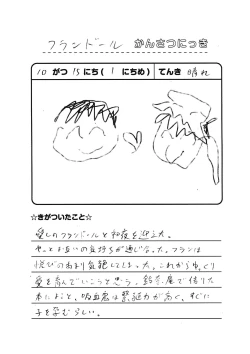 フランドール かんさつにっき
10 がつ 15 にち( 1 にちめ) てんき 晴れ
☆きがついたこと☆
愛しのフランドールと初夜を迎えた。
やっとお互いの気持ちが通じ合った。フランは
悦びのあまり気絶してしまった。これからゆっくり
愛を育んでいこうと思う。鈴奈庵で借りた
本によると、吸血鬼は繁殖力が高く、すぐに
子を孕むらしい。